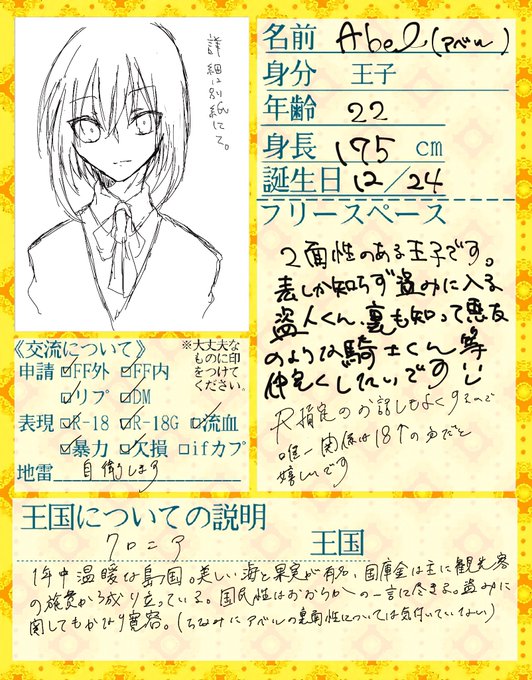 詳細は別紙にて。
名前 Abel(アベル)
身分 王子
年齢 22
身長 175 cm
誕生日 12/24
フリースペース
2面性のある王子です。
表しか知らず盗みに入る
盗人くん、裏も知って悪友
のような騎士くん等
仲良くしたいです!
R指定のお話しもよくするので
唯一関係は18↑の方だと
嬉しいです
《交流について》
※大丈夫な
ものに印
をつけて
ください。
申請 FF外 FF内
リプ DM
表現 R-18 R-18G 流血
暴力 欠損 ifカプ
地雷 自衛します
王国についての説明
クロニア 王国
1年中温暖な島国。美しい海と果実が有名、国庫金は主に観光客
の旅費から成り立っている。国民性はおおらかの一言に尽きる。盗みに
関してもかなり寛容。(ちなみにアベルの裏面性については気付いていない)